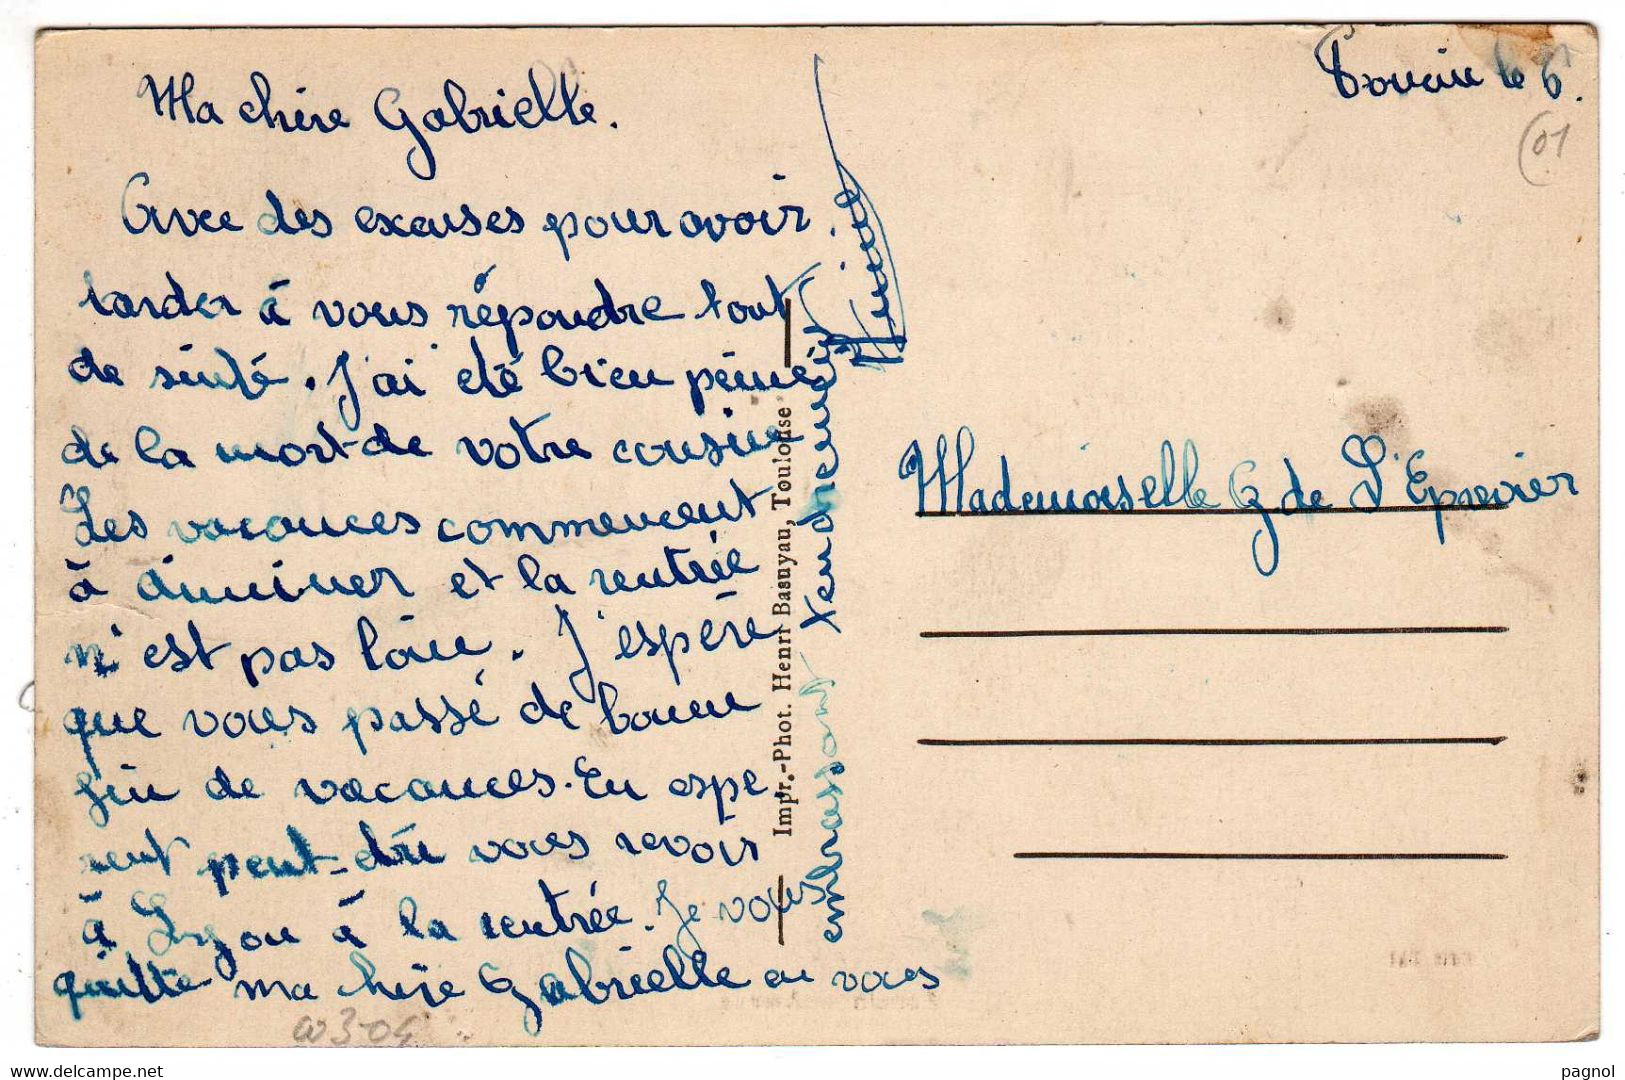 le 6.
(01
Ma chère Gabrielle.
Avec des excuses pour avoir
tarder à vous répondre tout
de suite. J'ai été bien peinée
de la mort de votre cousine
Les vacances commencent
à diminuer et la rentrée
n'est pas loin. J'espère
que vous passé de bonne
fin de vacances. En espé
rent peut-être vous revoir
à Lyon à la rentrée. Je vous
quitte ma chère Gabrielle en vous
embrassant tendrement
Impr.-Phot. Henri Basuyau, Toulouse
Mademoiselle G de L'Epervier
w304
pagnol